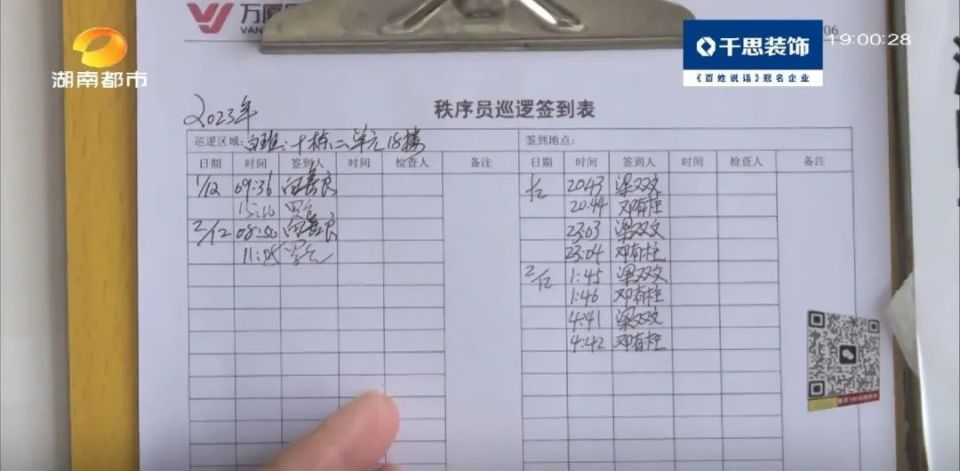 湖南都市
万厦
VAN
千思装饰
《百姓说话》冠名企业
06
19:00:28
2023年
秩序员巡逻签到表
巡逻区域: 白班:十栋二单元18楼
签到地点:
日期 时间 签到人 时间 检查人 备注 日期 时间 签到人 时间 检查人 备注
1/12 09:36 1/12 20:43 梁双文
15:10 20:44 邓有柱
2/12 08:50 23:03 梁双文
23:04 邓有柱
2/12 1:45 梁双文
1:46 邓有柱
4:41 梁双文
4:42 邓有柱